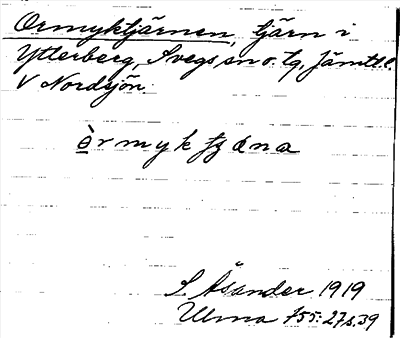 Ormyktjärnen, tjärn i
Ytterberg, Svegs sn o. tg, Jämtl. l.
V Nordsjön.
òrmyktjæ̂na
S. Åsander 1919
Ulma 155:27 s. 39